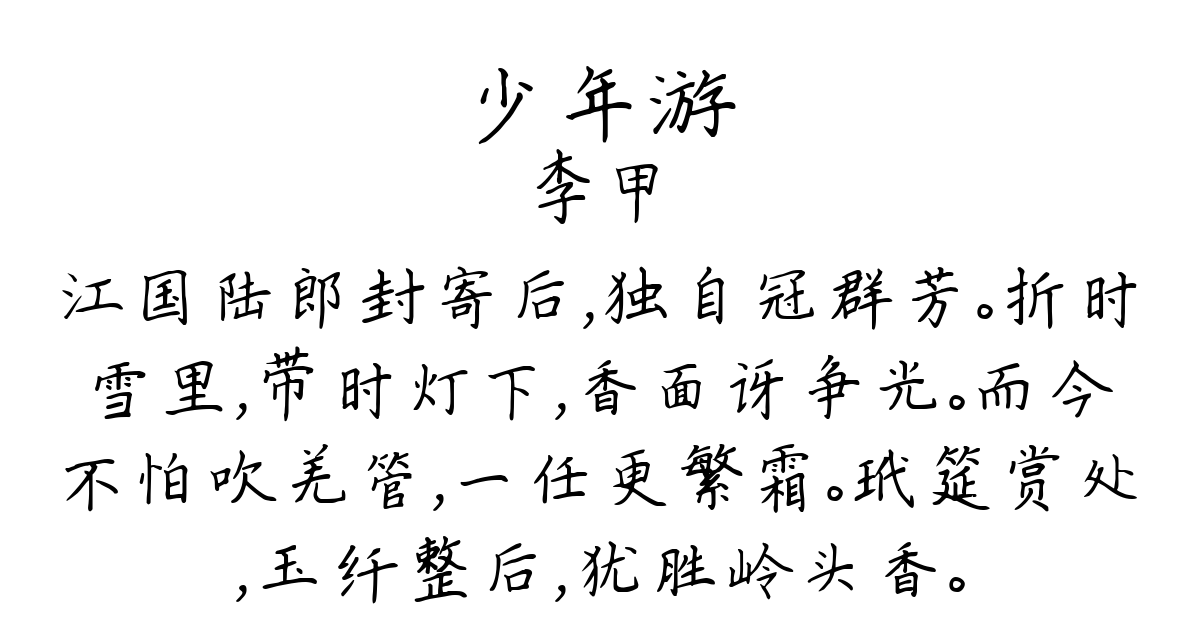 少年游
李甲
江国陆郎封寄后,独自冠群芳。折时
雪里,带时灯下,香面讶争光。而今
不怕吹羌管,一任更繁霜。玳筵赏处
,玉纤整后,犹胜岭头香。